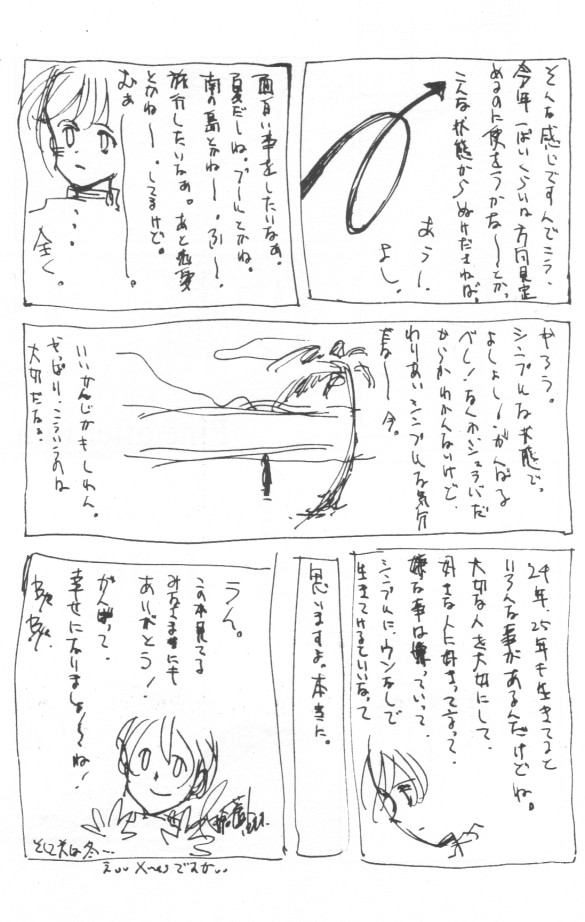 そんな感じですんでこう、
今年一ぱいくらいは方向見定
めるのに使をうかな〜とか。
こんな状態からぬけださねば。
あうー、
よし。
面白い事をしたいなぁ。
夏だしね。プールとかね。
南の島とかね〜。ふ〜。
旅行したいなぁ。あと恋愛
とかね〜。してるけど。
むぁ〜〜。
・・・
全く。
やろう。
シンプルな状態で。
よしよし！がんばる
べし！なんか、シュラバだ
からかわかんないけど、
わりあいシンプルな気分
だな〜今。
いいかんじかもしれん。
やっぱり、こういうのは
大切だなぁ。
24年、25年も生きてると
いろんな事があるんだけどね。
大切な人を大切にして、
好きな人に好きって言って、
嫌な事は嫌っていって、
シンプルに、ウソなしで
生きてけるといいなって
思いますよ。本当に。
うん。
この本見てる
みなさまにも
ありがとう！
がんばって、
幸せになりましょ〜ね！
そして次は冬…
えぃぃX~masですかぃ。